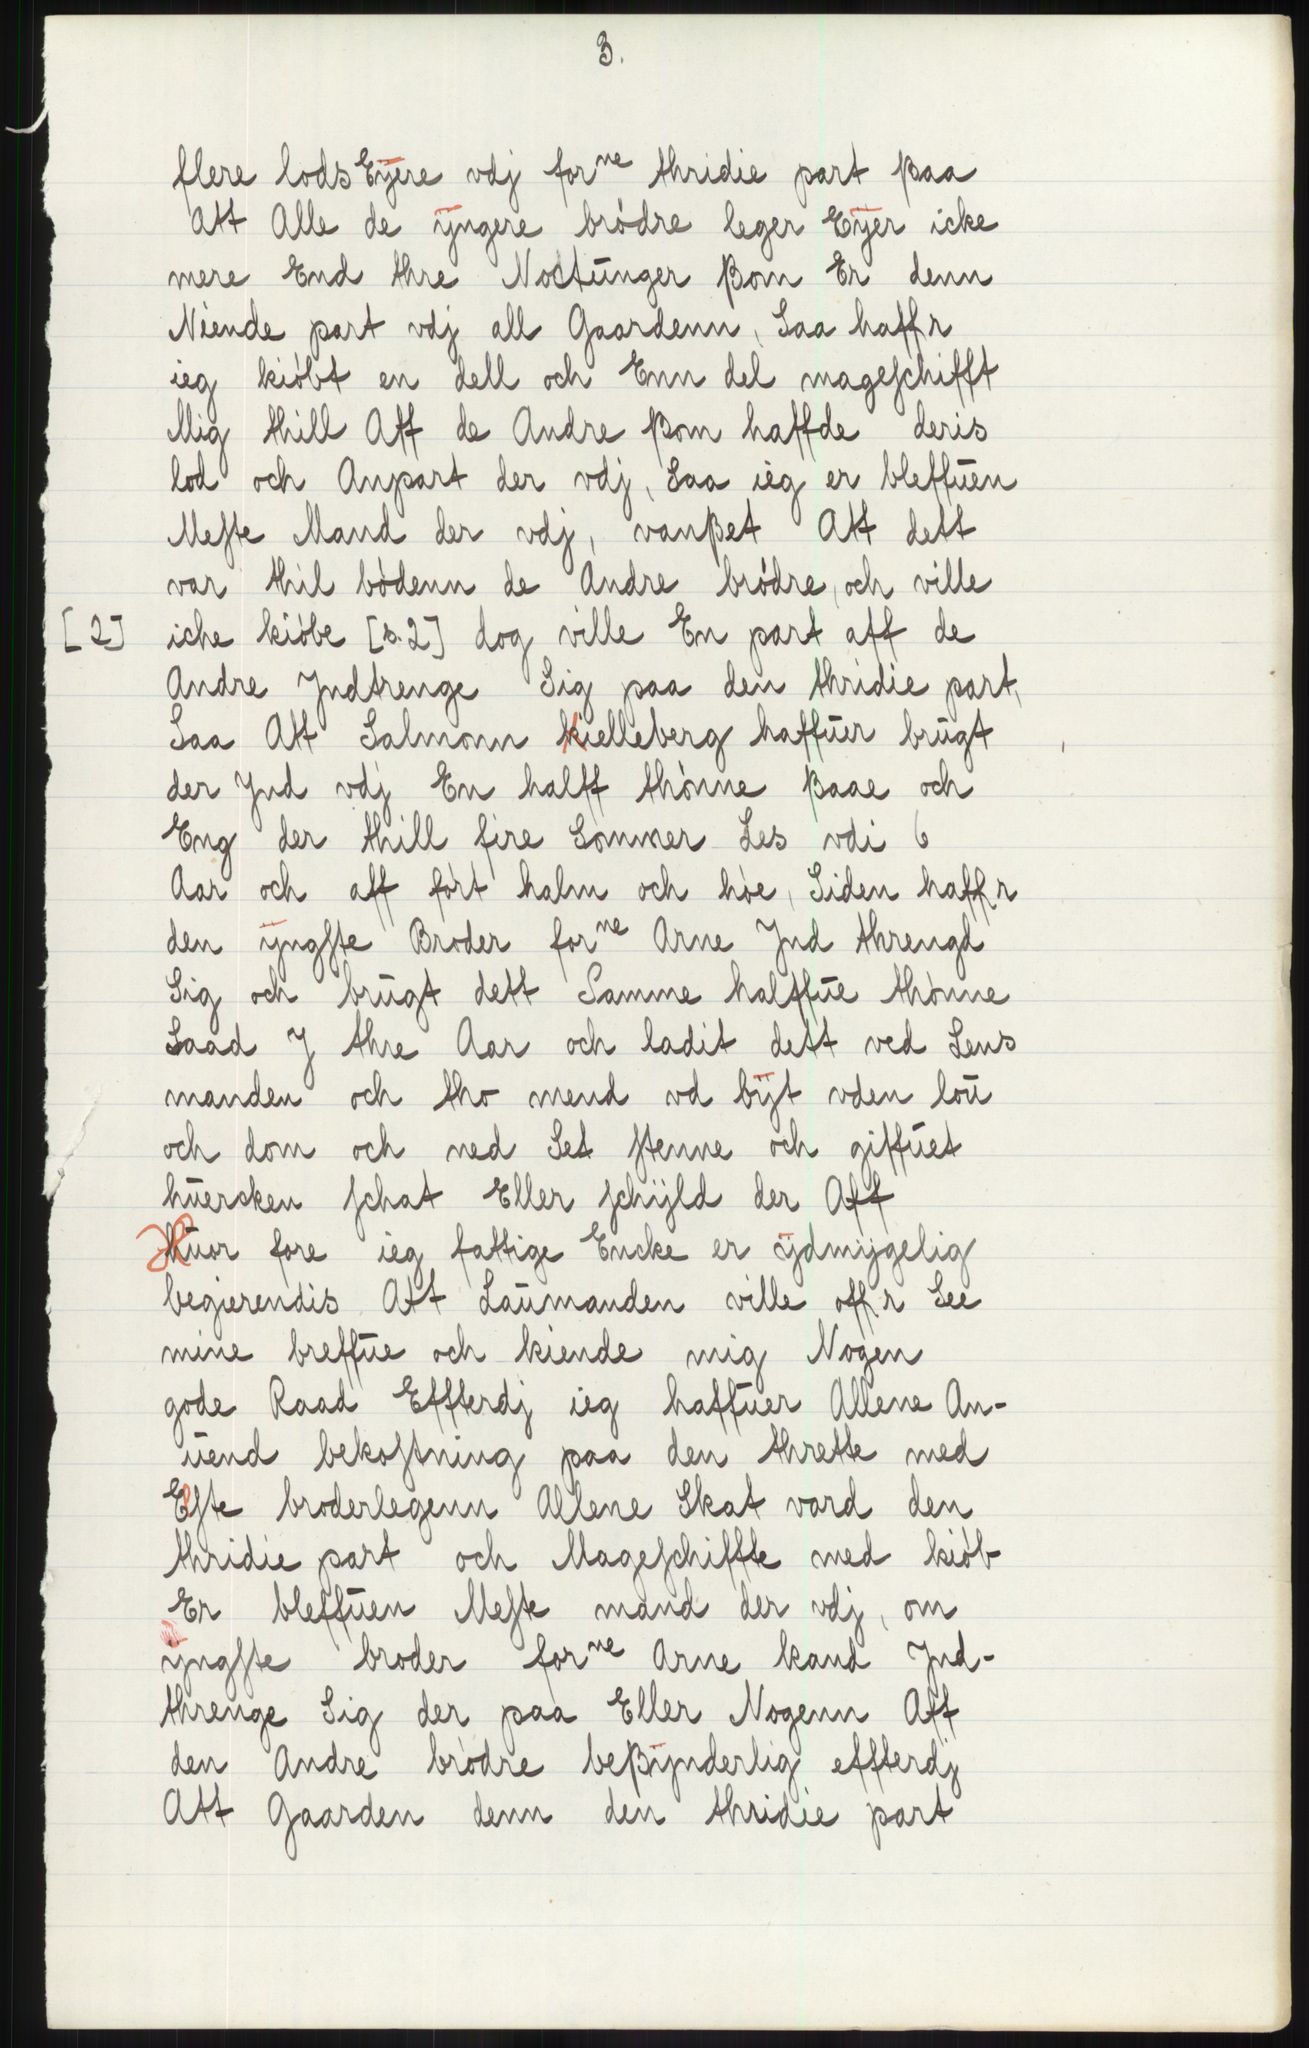 3.
flere lods Eÿere vdj forne thridie part ßaa
Att Alle de ÿngere brødre leger Eÿer icke
mere End thre Nostūnger ßom Er denn
Niende part vdj all Gaardenn, Saa haffr
ieg kiøbt en dell och Enn del mageschifft
Mig thill Aff de Andre ßom haffde deris
lod och Anpart der vdj, Saa ieg er bleffūen
Meste Mand der vdj, vanßet Att dett
var thil bødenn de Andre brødre, och ville
[2] iche kiøbe [s.2] dog ville En part aff de
Andre Jndtrenge Sig paa den thridie part,
Saa Att Salmonn Kielleberg haffūer brūgt
der Jnd vdj En halff thønne ßaae och
Eng der thill fire Sommer Les vdi 6
Aar och aff ført halm och høe, Siden haffr
den ÿngste Broder forne Arne Jnd threngd
Sig och brūgt dett Samme halffūe thønne
Saad J thre Aar och ladit dett ved Lens
manden och tho mend vd bÿt vden loū
och dom och ned Set stenne och giffūet
hūercken schat Eller schÿld der Aff
Hūor fore ieg fattige Encke er ÿdmÿgelig
begierendis Att Laūmanden ville offr See
mine breffūe och kiende mig Nogen
gode Raad Effterdj ieg haffūer Allene An-
ūend bekostning paa den thrette med
Elste broderlegenn Allene Skat vard den
thridie part och Mageschiffte med kiøb
Er bleffūen Meste mand der vdj, om
ÿngste broder forne Arne kand Jnd-
threnge Sig der paa Eller Nogenn Aff
den Andre brødre beßÿnderlig effterdj
Att Gaarden denn den thridie part